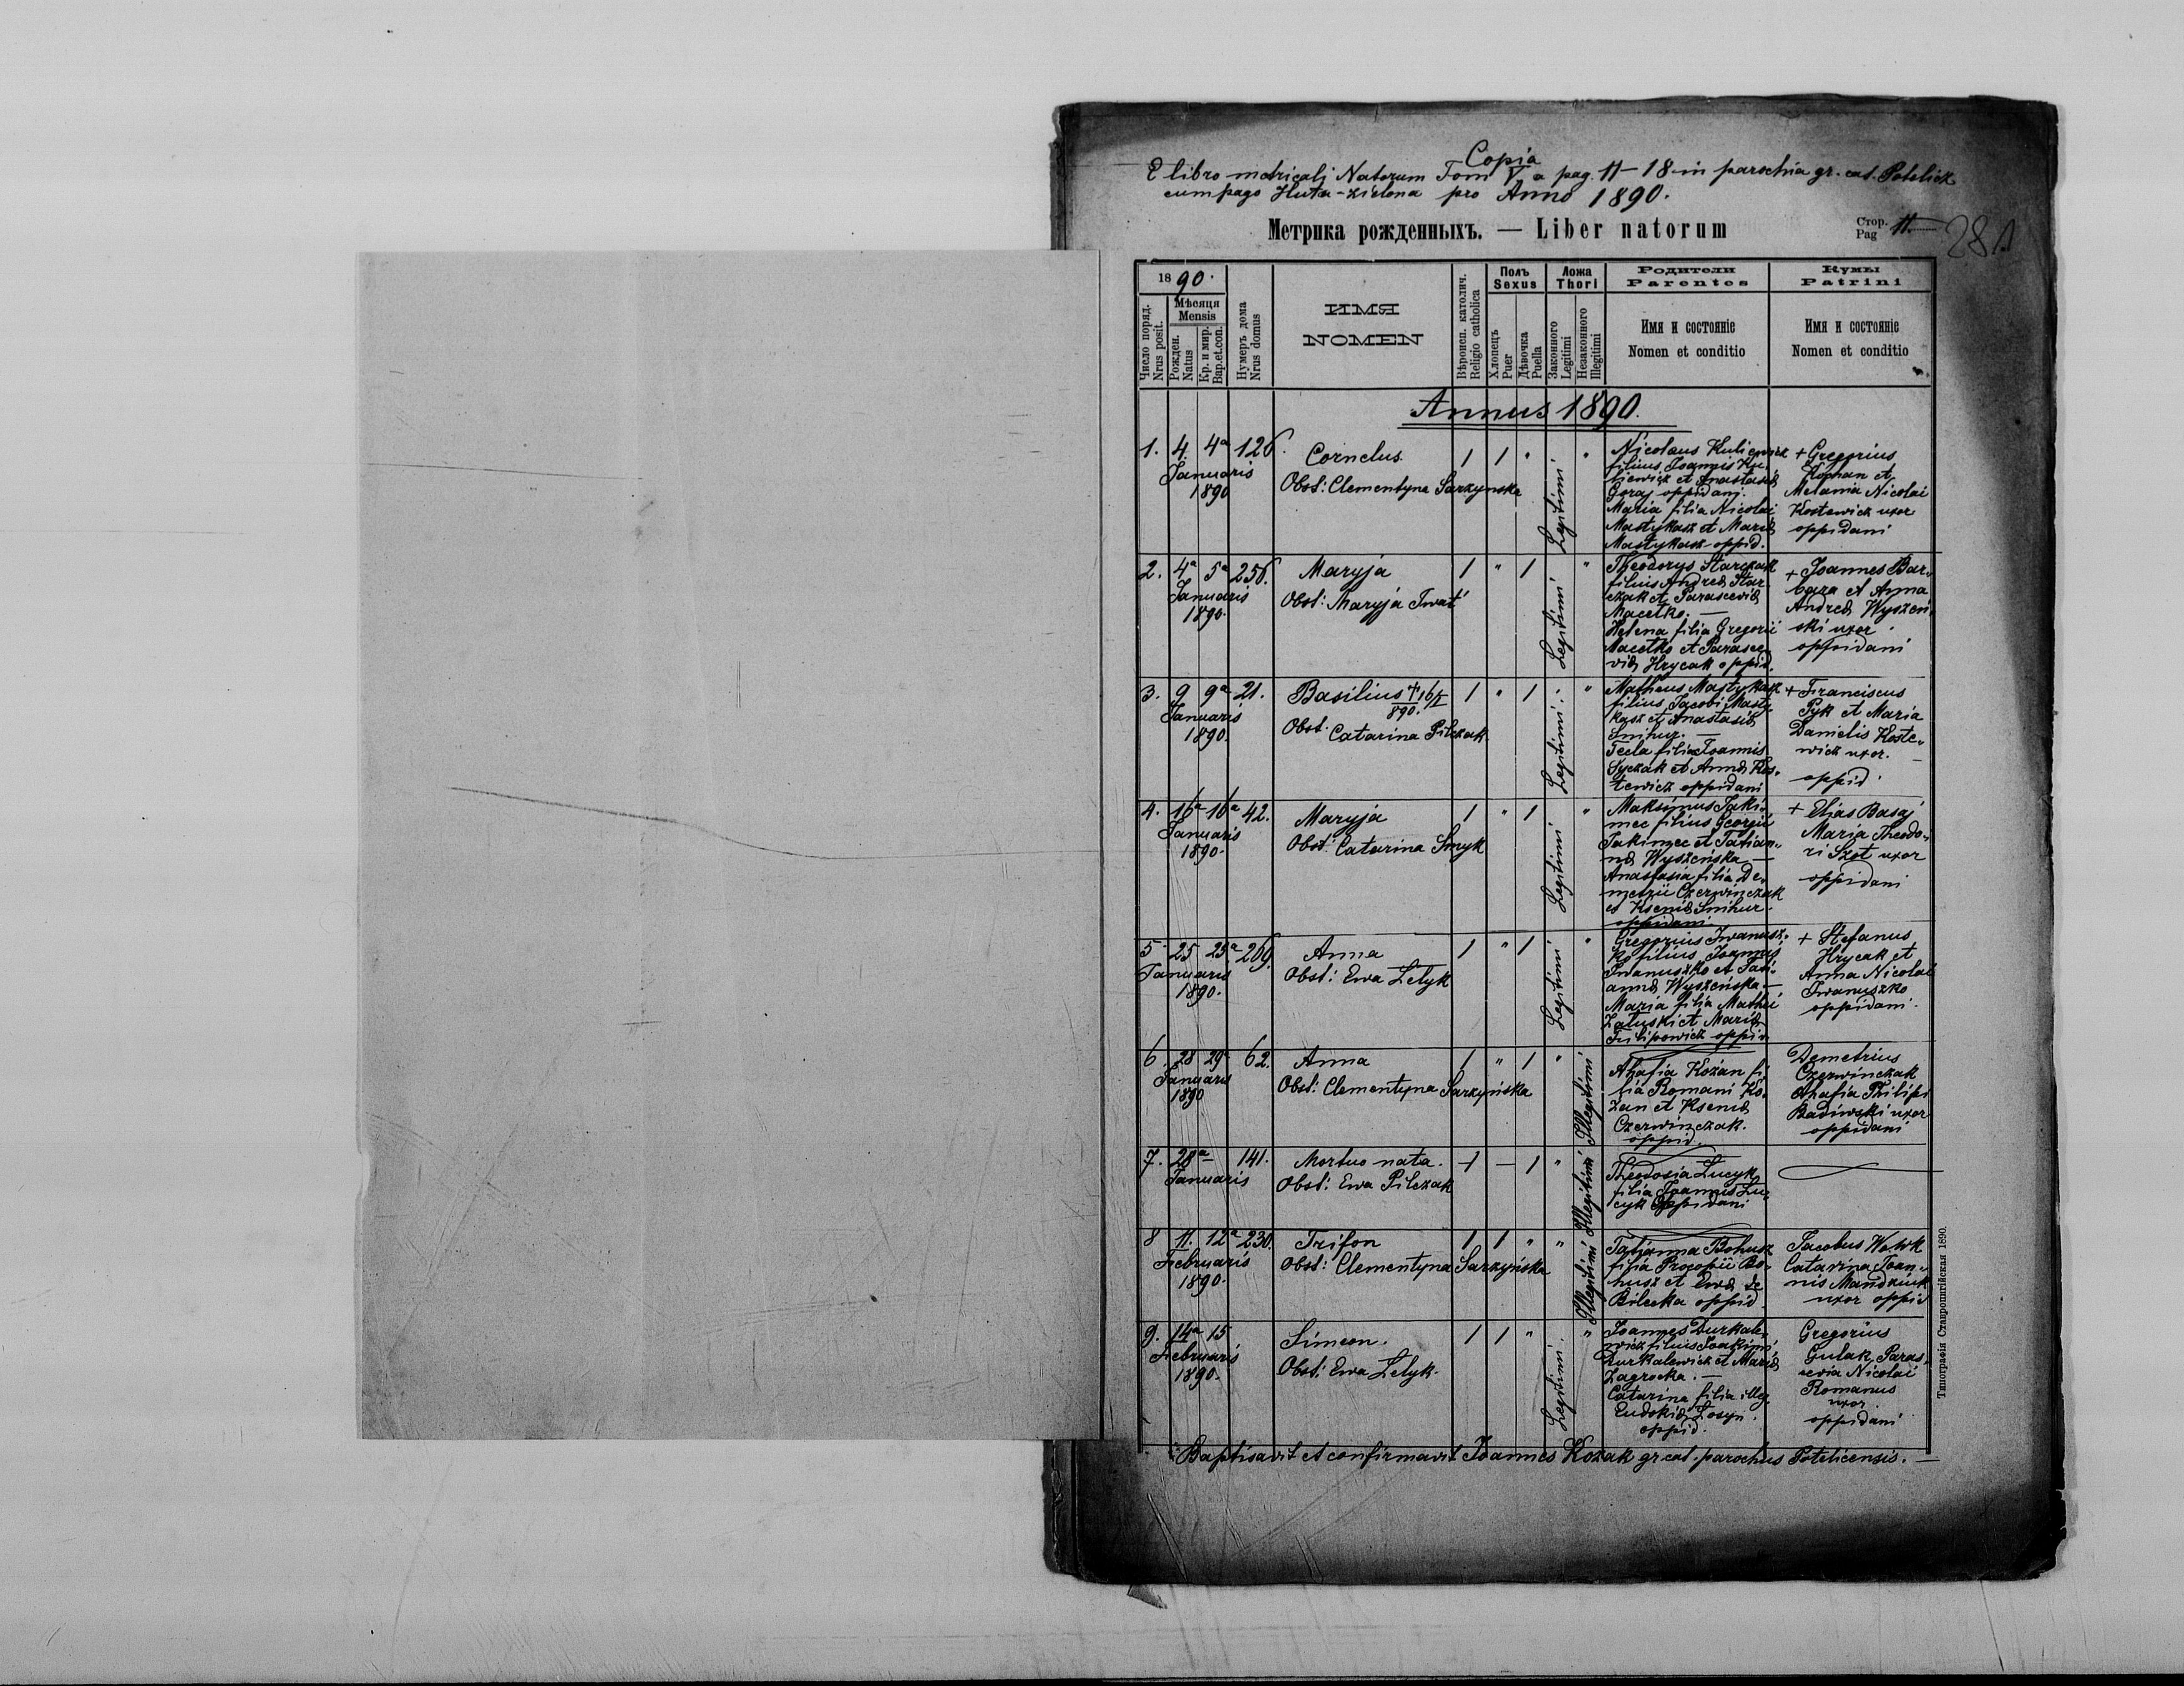 Copia
E libro metricali Natorum Tom V a pag. 11-18 in parochia gr. cat. Potelicz
cum pago Huta-zielona pro Anno 1890.
Метрика рожденныхъ. — Liber natorum
Стор. Pag 11.
281
1890.
Число поряд. Nrus posit.
Мѣсяця Mensis
Рожден. Natus
Кр. и мир. Bap. et. con.
Нумеръ дома Nrus domus
ИМЯ
NOMEN
Вѣроисп. католич. Religio catholica
Полъ Sexus
Хлопецъ Puer
Дѣвочка Puella
Ложа Thori
Законного Legitimi
Незаконного Illegitimi
Родители
Parentes
Имя и состояніе
Nomen et conditio
Кумы
Patrini
Имя и состояніе
Nomen et conditio
Annus 1890.
1. 4. 4a 126.
Januaris
1890
Cornelus
Obst: Clementyna Sarzynska
1 1 " Legitimi "
Nicolaus Kuliewicz
filius Joannis Ku-
liewicz et Anastasiæ
Goraj oppidani.
Maria filia Nicolai
Mastykasz et Mariæ
Mastykasz oppid.
+ Gregorius
Kochan et
Melania Nicolai
Kostewicz uxor
oppidani
2. 4a 5a 256.
Januaris
1890.
Maryja
Obst: Maryja Iwat
1 " 1 Legitimi "
Theodorys Starczak
filius Andreæ Star-
czak et Parasceviæ
Macetko. —
Helena filia Gregorii
Macetko et Parasce-
viæ Hrycak oppid.
+ Joannes Bar-
bara et Anna
Andreæ Wyszeń-
ski uxor
oppidani
3. 9 9a 21.
Januaris
1890.
Basilius + 16/I 890.
Obst. Catarina Pilczak
1 " 1 Legitimi "
Matheus Mastykasz
filius Jacobi Masty-
kasz et Anastasiæ
Snihur. —
Tecla filia Joannis
Syczak et Annæ Kos-
tewicz oppidani
+ Franciscus
Pyk et Maria
Danielis Koste-
wicz uxor. —
oppid.
4. 16a 16a 42.
Januaris
1890.
Maryja
Obst: Catarina Smyk
1 " 1 Legitimi "
Maksimus Jaki-
mec filius Georgii
Jakimec et Tatian-
næ Wyszeńska —
Anastasia filia De-
metrii Czerwinczak
et Kseniæ Snihur
oppidani
+ Elias Basaj
Maria Theodo-
ri Szot uxor
oppidani
5. 25 25a 269.
Januaris
1890.
Anna
Obst: Ewa Zelyk
1 " 1 Legitimi "
Gregorius Iwanusz-
ko filius Joannis
Iwanuszko et Tati-
annæ Wyszeńska —
Maria filia Mathei
Zaluski et Mariæ
Filipowicz oppid.
+ Stefanus
Hrycak et
Anna Nicolai
Iwanuszko
oppidani.
6. 28 29a 62.
Januaris
1890
Anna
Obst: Clementyna Sarzyńska
1 " 1 " Illegitimi
Ahafia Kozan fi-
lia Romani Ko-
zan et Kseniæ
Czerwinczak.
oppid.
Demetrius
Czerwinczak
Ahafia Philipi
Badiwski uxor
oppidani
7. 28a — 141.
Januaris
Mortuo nata.
Obst: Ewa Pilczak
1 — 1 " Illegitimi
Theodosia Lucyk
filia Joannis Lu-
cyk Oppidani
8 11. 12a 230.
Februaris
1890.
Trifon
Obst: Clementyna Sarzyńska
1 1 " " Illegitimi
Tatianna Bohusz
filia Procopii Bo-
husz et Ewæ de
Bilecka oppid.
Jacobus Wowk
Catarina Joan-
nis Mandziuk
uxor oppid
9. 14a 15
Februaris
1890.
Simeon.
Obst: Ewa Zelyk.
1 1 " Legitimi "
Joannes Durkale-
wicz filius Joakimi
Durkalewicz et Mariæ
Zagrocka. —
Catarina filia illeg.
Eudokiæ Losyn.
oppid.
Gregorius
Gulak, Paras-
cevia Nicolai
Romanus
uxor.
oppidani
Baptisavit et confirmavit Joannes Kozak gr cat. parochus Potelicensis. —
Типографія Ставропигійская 1890.